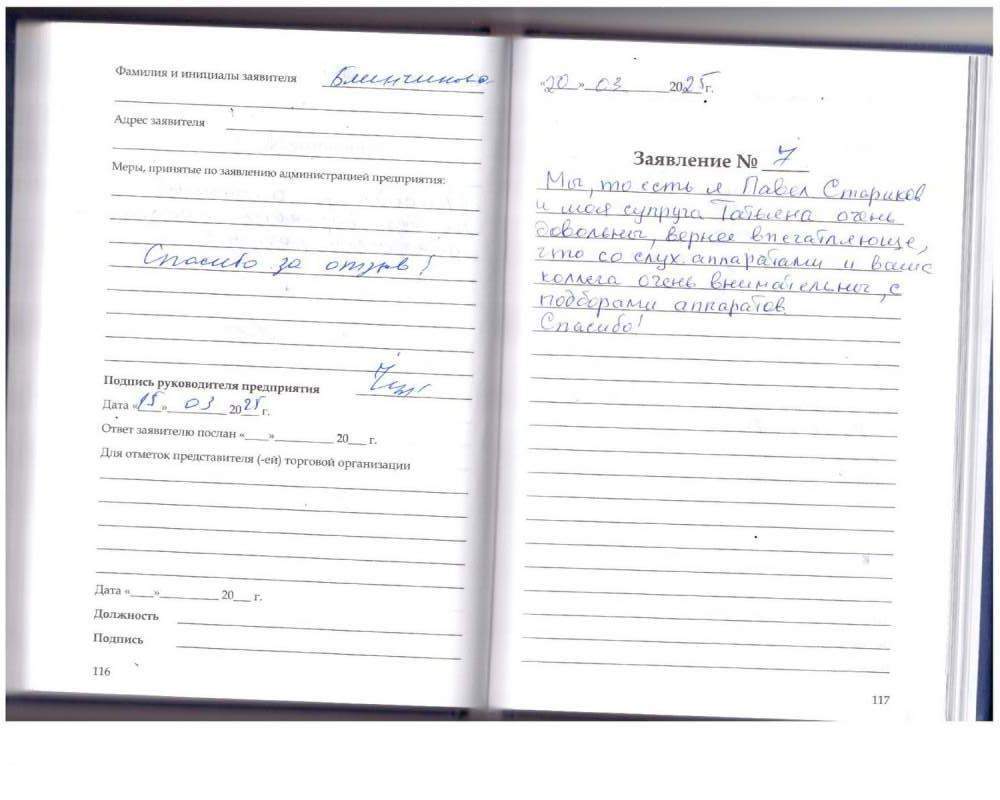 Фамилия и инициалы заявителя Блинчикова
Адрес заявителя
Меры, принятые по заявлению администрацией предприятия:
Спасибо за отзыв!
Подпись руководителя предприятия
Дата «15» 03 2025 г.
Ответ заявителю послан «____»__________ 20___ г.
Для отметок представителя (-ей) торговой организации
Дата «____»__________ 20___ г.
Должность
Подпись
116
«20» 03 2025г.
Заявление № 7
Мы, то есть я Павел Стариков
и моя супруга Татьяна очень
довольны, вернее впечатляюще,
что со слух. аппаратами и ваша
коллега очень внимательны, с
подборами аппаратов
Спасибо!
117